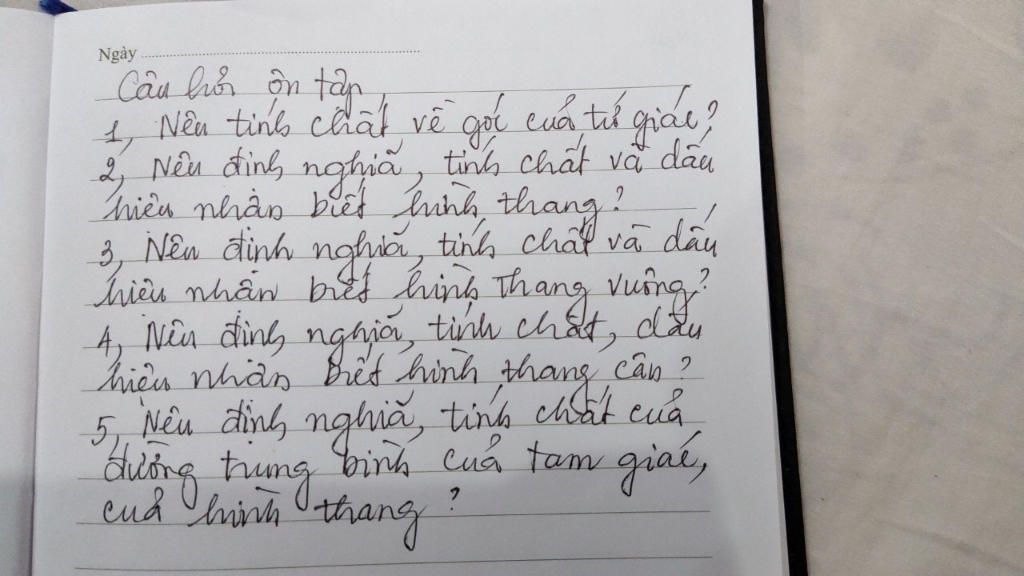 Ngày
Câu hỏi ôn tập
1, Nêu tính chất về góc của tứ giác?
2, Nêu định nghĩa, tính chất và dấu
hiệu nhận biết hình thang?
3, Nêu định nghĩa, tính chất và dấu
hiệu nhận biết hình thang vuông?
4, Nêu định nghĩa, tính chất, dấu
hiệu nhận biết hình thang cân?
5, Nêu định nghĩa, tính chất của
đường trung bình của tam giác,
của hình thang?